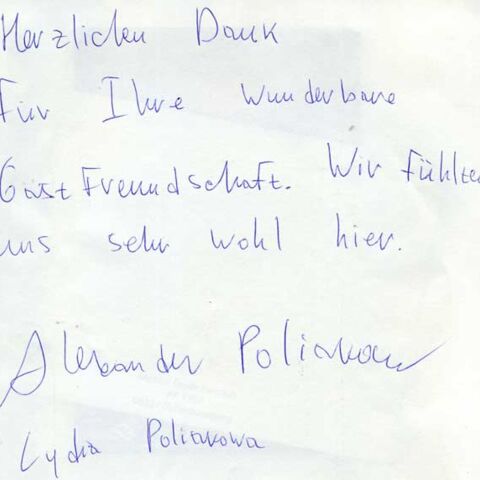 Herzlichen Dank
Für Ihre wunderbare
Gastfreundschaft. Wir fühlten
uns sehr wohl hier.
Alexander Poliakow
Lydia Poliakowa